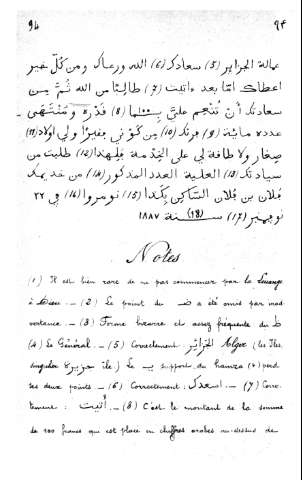 94 ٩٤
عمالة الجزاير (5) سعادك (6) الله ورعاك ومن كل خير
اعطاك امّا بعد ءاتيت (7) طالبًا من الله ثم من
سعادتك أن تُنْعِم عليّ بـ (8) قَدْرُه ومُنْتَهَى
عدده مائة (9) فرنك (10) مِن كَوْني فقيرًا ولي اولاد (11)
صغار ولا طاقة لي على الخِدْمة فلهذا (12) طلبت من
سيادتك (13) العلية العدد المذكور (14) من خديمك
فلان بن فلان الساكن بكذا (15) نومروا (16) في ٢٢
نوفمبر (17) سنة (18) ١٨٨٧
Notes
(1) Il est bien rare de ne pas commencer par la louange
à Dieu. — (2) Le point du ض a été omis par inad-
vertance. — (3) Forme bizarre et assez fréquente du ط
(4) Le Général. — (5) Correctement الجزائر Alger (les Iles.
singulier جزيرة île.) Le ـيـ support du hamza (ء) perd
ses deux points — (6) Correctement : اسعدك — (7) Corr-
tement : أتيت — (8) C'est le montant de la somme
de 100 francs qui est placé en chiffres arabes au-dessus de